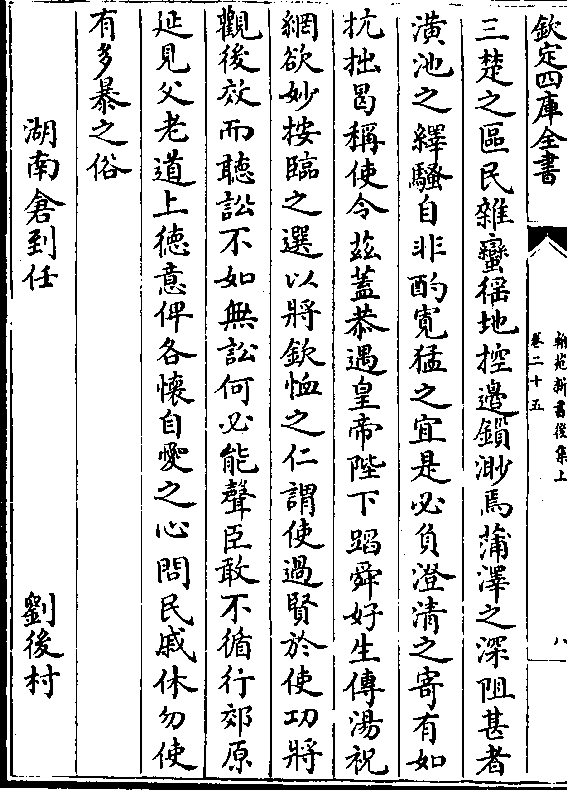 欽定四庫全書
翰苑新書後集上
卷二十五
八
三楚之區民雜蠻徭地控邊鎻渺焉蒲澤之深阻甚者
潢池之繹騷自非酌寛猛之宜是必負澄清之寄有如
抗拙曷稱使令兹蓋恭遇皇帝陛下蹈舜好生傳湯祝
網欲妙按臨之選以將欽恤之仁謂使過賢於使功將
觀後效而聽訟不如無訟何必能聲臣敢不循行郊原
延見父老道上徳意俾各懐自愛之心問民戚休勿使
有多暴之俗
湖南倉到任
劉後村